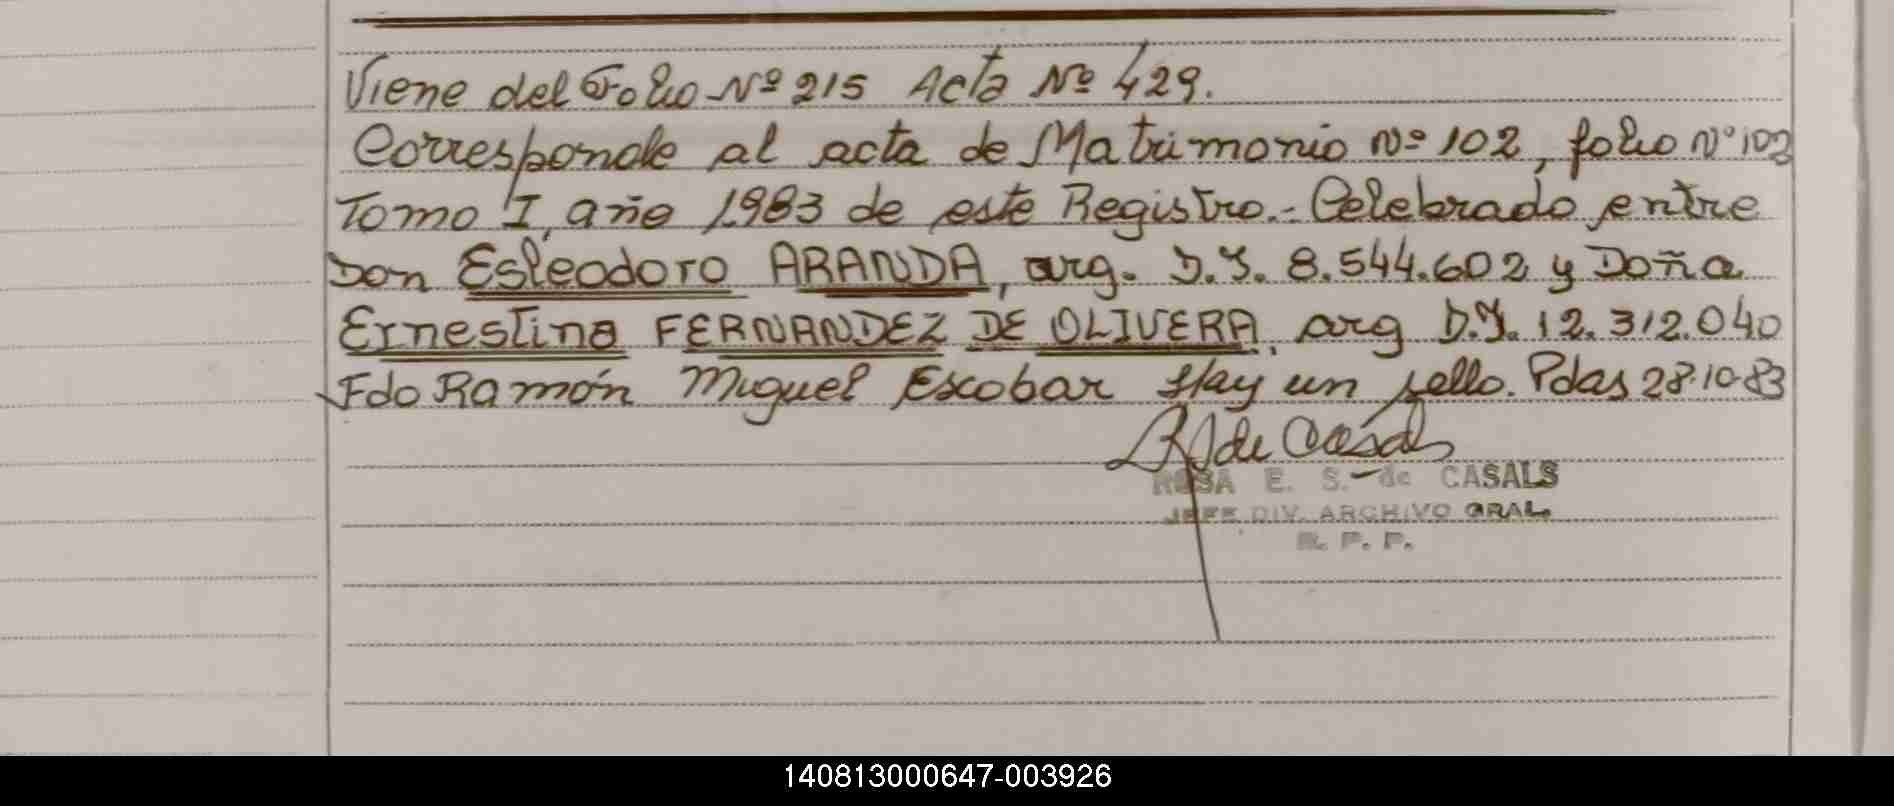 Viene del Folio Nº 215 Acta Nº 429.
Corresponde al acta de Matrimonio Nº 102, folio Nº 102
Tomo I, año 1983 de este Registro.- Celebrado entre
Don Esleodoro ARANDA, arg. D.I. 8.544.602 y Doña
Ernestina FERNANDEZ DE OLIVERA, arg D.I. 12.312.040
Fdo Ramón Miguel Escobar Hay un sello. Pdas 28-10-83
R S de Casals
ROSA E. S. de CASALS
JEFE DIV. ARCHIVO GRAL.
R. P. P.
140813000647-003926